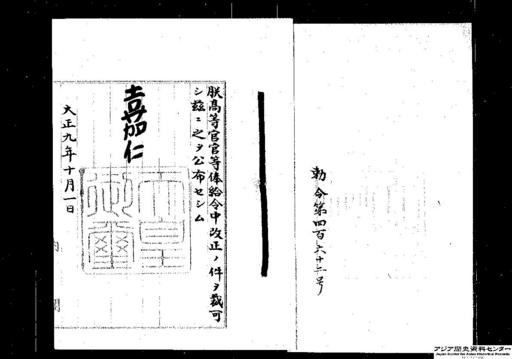 勅令第四百六十二号
朕高等官官等俸給令中改正ノ件ヲ裁可
シ茲ニ之ヲ公布セシム
嘉仁
天皇
御璽
大正九年十月一日
内閣
アジア歴史資料センター
Japan Center for Asian Historical Records